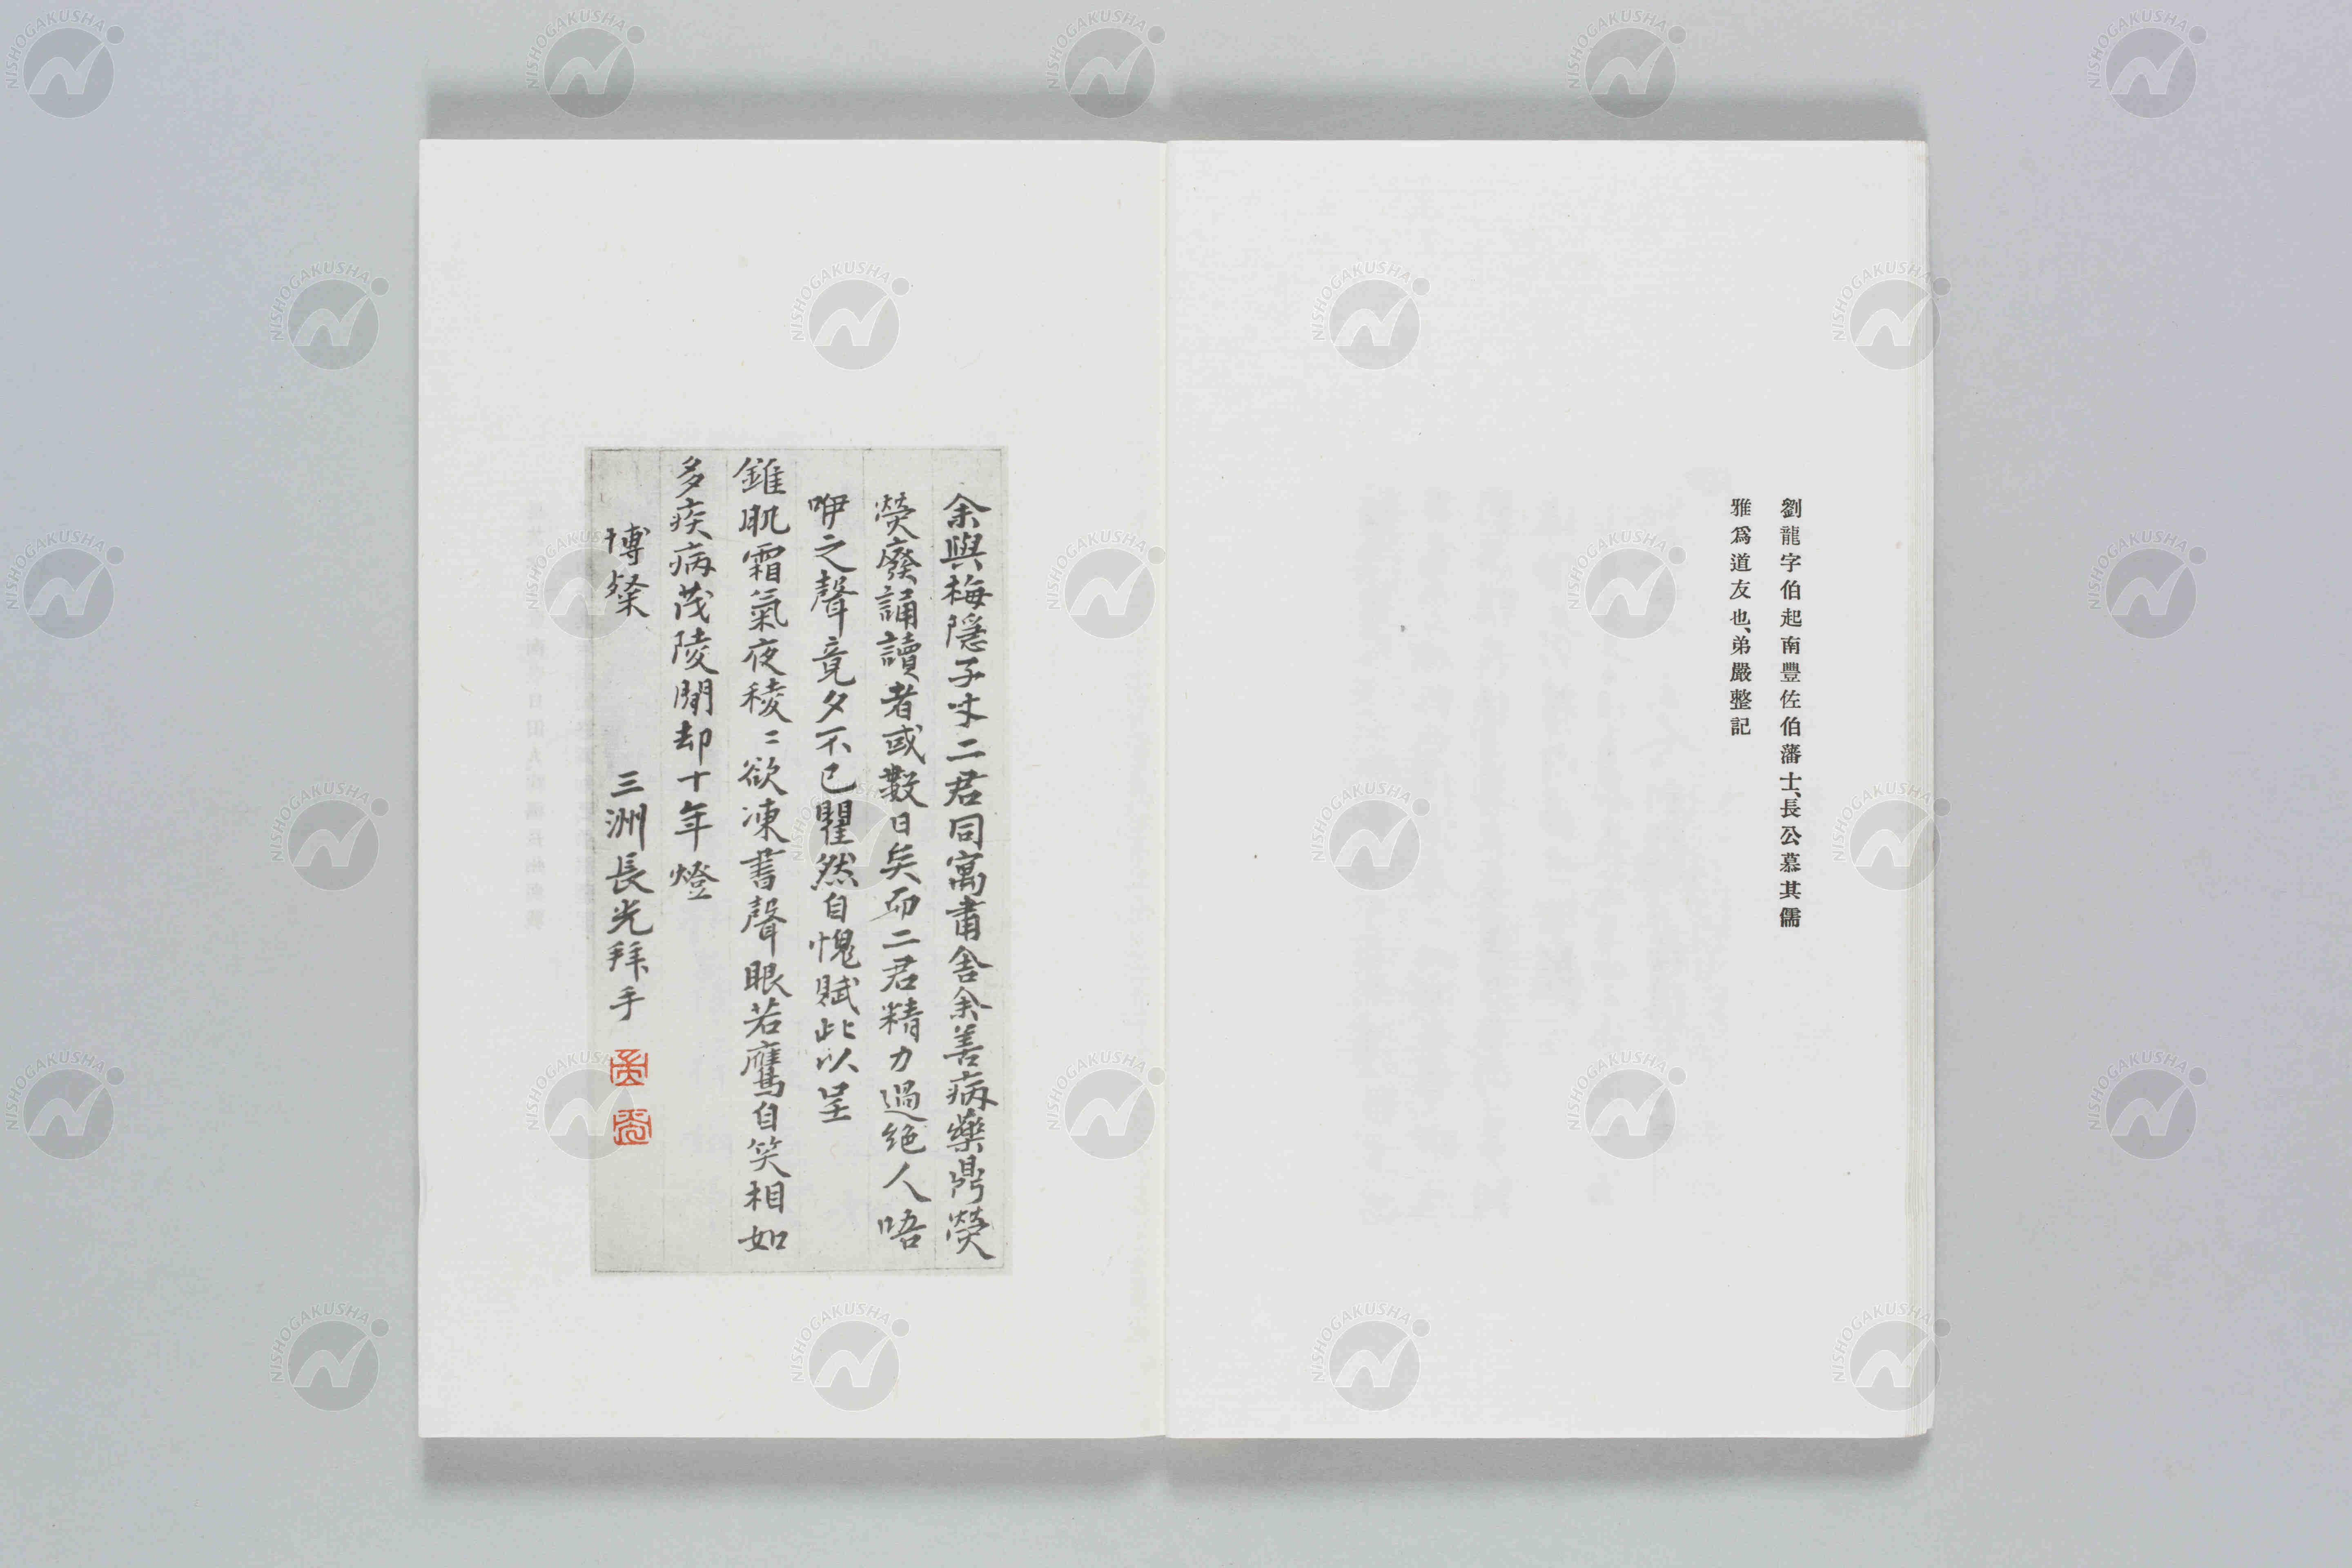 劉龍字伯起南豐佐伯藩士、長公慕其儒
雅爲道友也、弟嚴整記
余與梅隱子寸二君同寓甫舍余善病藥鼎熒
熒廢誦讀者或數日矣而二君精力過絕人唔
咿之聲竟夕不已瞿然自愧賦此以呈
錐肌霜氣夜稜〻欲凍書聲眼若鷹自笑相如
多疾病茂陵閒却十年燈
博粲
三洲長光拜手
NISHOGAKUSHA